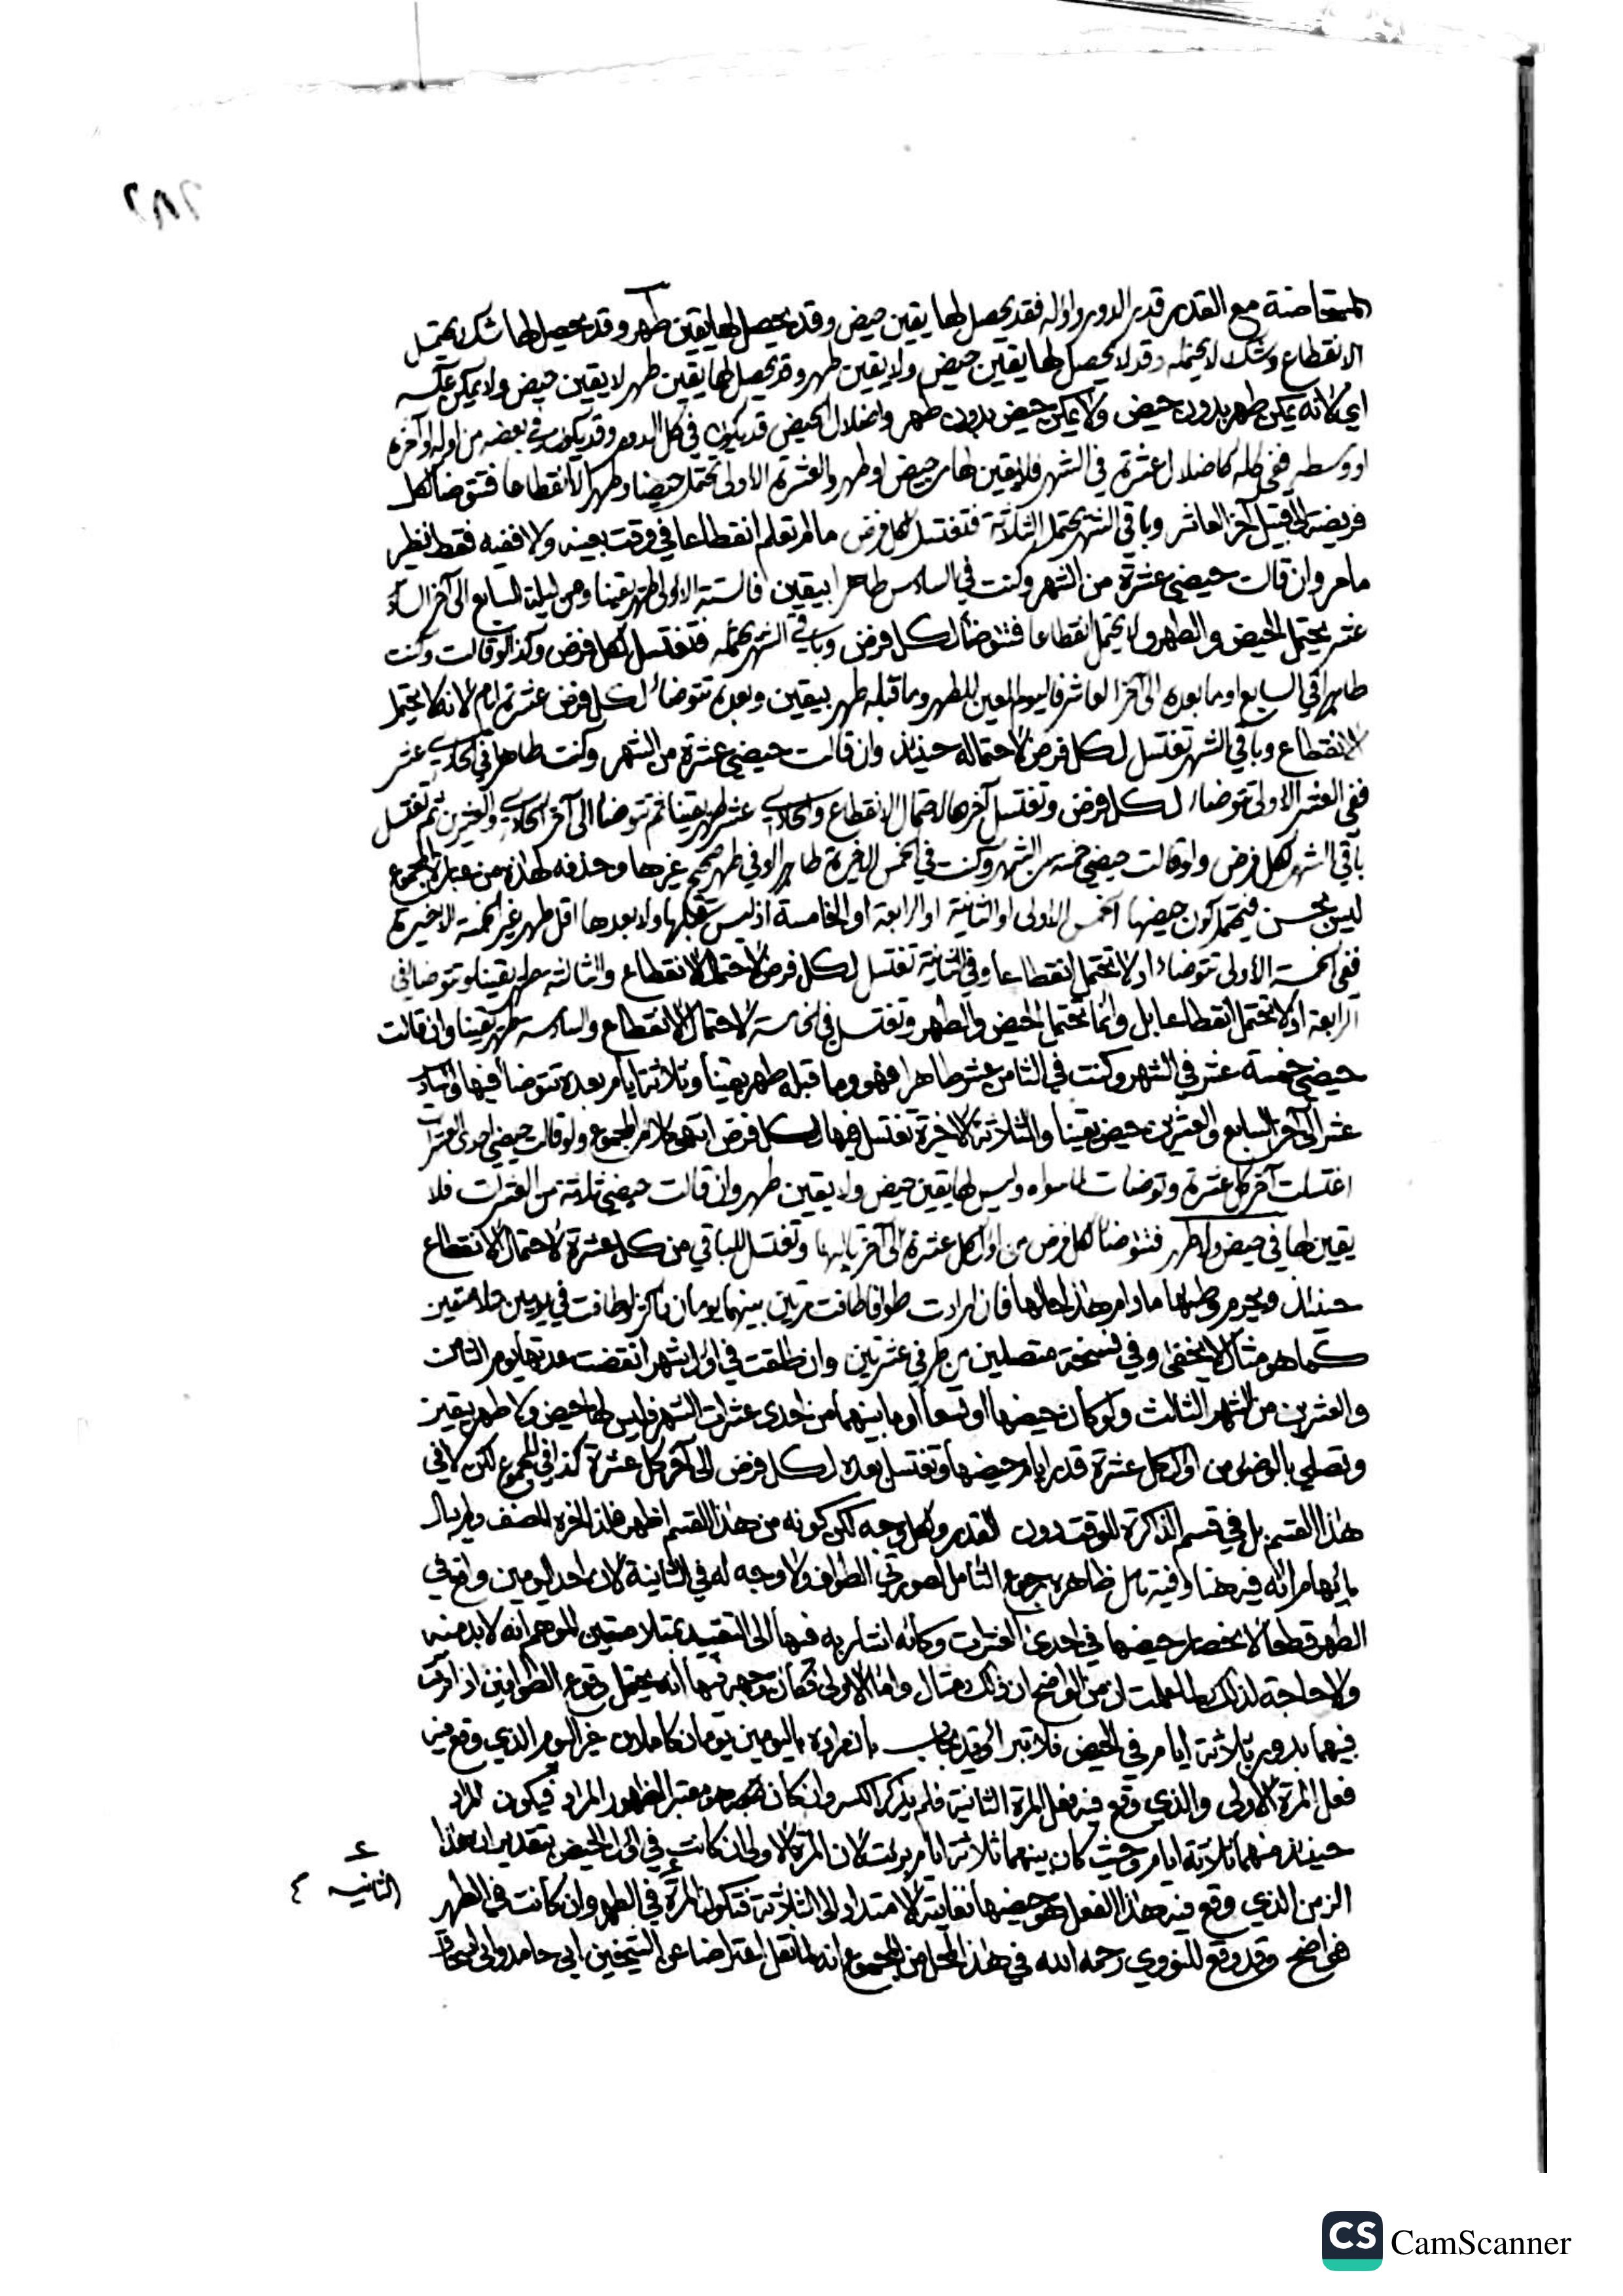 ٢٨٢
المستحاضة مع القدر قدر الدور واوله فقد يحصل لها يقين حيض وقد يحصل لها يقين طهر وقد يحصل لها شك يحتمل
الانقطاع وشك لا يحتمله وقد لا يحصل لها يقين حيض ولا يقين طهر وقد يحصل لها يقين طهر لا يقين حيض ولا يمكن عكسه
اي لانه يمكن طهر بدون حيض ولا يمكن حيض بدون طهر واضلال الحيض قد يكون في كل الدور وقد يكون في بعضه من اوله او آخره
او وسطه ففي كله كاضلال عشرة في الشهر فلا يقين لها من حيض او طهر والعشرة الاولى تحتمل حيضا وطهرا لا انقطاعا فتتوضأ لكل
فريضة الى قبيل آخر العاشر وباقي الشهر يحتمل الثلاثة فتغتسل لكل فرض ما لم تعلم انقطاعا في وقت بعينه والا ففيه فقط نظير
ما مر وان قالت حيضي عشرة من الشهر وكنت في السادس طاهرا بيقين فالستة الاولى طهر يقينا ومن ليلة السابع الى آخر السادس
عشر يحتمل الحيض والطهر ولا يحتمل انقطاعا فتتوضأ لكل فرض وباقي الشهر يحتمله فتغتسل لكل فرض وكذا لو قالت وكنت
طاهرا في السابع او ما بعده الى آخر العاشر فاليوم المعين للطهر وما قبله طهر بيقين وبعده تتوضاء لكل فرض عشرة ايام لانه لا يحتمل
الانقطاع وباقي الشهر تغتسل لكل فرض لاحتماله حينئذ وان قالت حيضي عشرة من الشهر وكنت طاهرا في الحادي عشر
ففي العشر الاولى تتوضاء لكل فرض وتغتسل آخرها لاحتمال الانقطاع والحادي عشر طهر يقينا ثم تتوضأ الى آخر الحادي والعشرين ثم تغتسل
باقي الشهر لكل فرض ولو قالت حيضي خمسة من الشهر وكنت في الخمس الاخيرة طاهرا وفي طهر صحيح غيرها وحذفه لهذه من عبارة المجموع
ليس بحسن فيحتمل كون حيضها الخمس الاولى او الثانية او الرابعة او الخامسة اذ ليس قبلها ولا بعدها اقل طهر غير الخمسة الاخيرة
ففي الخمسة الاولى تتوضاء اذ لا تحتمل انقطاعا وفي الثانية تغتسل لكل فرض لاحتمال الانقطاع والثالثة طهر يقينا وتتوضأ في
الرابعة اذ لا تحتمل انقطاعا بل وانما تحتمل الحيض والطهر وتغتسل في الخامسة لاحتمال الانقطاع والسادسة طهر يقينا وان قالت
حيضي خمسة عشر في الشهر وكنت في الثامن عشر طاهرا فهو وما قبله طهر يقينا وثلاثة ايام بعده تتوضأ فيها والثاني
عشر الى آخر السابع والعشرين حيض يقينا والثلاثة الاخيرة تغتسل فيها لكل فرض انتهى كلام المجموع ولو قالت حيضي احدى العشرات
اغتسلت آخر كل عشرة وتوضات لما سواه وليس لها يقين حيض ولا يقين طهر وان قالت حيضي ثلاثة من العشرات فلا
يقين لها في حيض ولا طهر فتتوضأ لكل فرض من اول كل عشرة الى آخر ثالثها وتغتسل للباقي من كل عشرة لاحتمال الانقطاع
حينئذ ويحرم وطئها ما دام هذا حالها فان ارادت طوافا طافت مرتين بينهما يومان فاكثر او طافت في يومين متلاصقين
كما هو مثال لا يخفى وفي نسخة متصلين من طرفي عشرتين وان طلقت في اول شهر انقضت عدتها يوم الثامن
والعشرين من الشهر الثالث ولو كان حيضها او تسعا او ما بينهما من احدى عشرات الشهر فليس لها حيض ولا طهر بيقين
وتصلي بالوضوء من اول كل عشرة قدر ايام حيضها وتغتسل بعده لكل فرض الى آخر كل عشرة كذا في المجموع لكن لا في
هذا القسم بل في قسم الذاكرة للوقت دون القدر ولكل وجه لكن كونه من هذا القسم اظهر فلذا اخره المصنف ولم يبال
بايهام انه فيه هنا وفيه تامل ظاهره رجوع التامل لصورتي الطواف ولا وجه له في الثانية لان احد اليومين واقع في
الطهر قطعا لانحصار حيضها في احدى العشرات وكانه اشار به فيها الى التقييد بمتلاصقين الموهم انه لا بد منه
ولا حاجة لذلك لما علمت ان من الواضح ان ذلك مثال واما الاولى فكان وجهه فيها انه يحتمل وقوع الطوافين اذا وقعت
فيهما بدور بثلاثة ايام في الحيض فلا تبرا وقد يجاب بان مراده باليومين يومان كاملان غير اليوم الذي وقع فيه
فعل المرة الاولى والذي وقع فيه فعل المرة الثانية فلم يذكر الكسر وان كان معتبرا لظهور المراد فيكون المراد
حينئذ منهما ثلاثة ايام وحيث كان بينهما ثلاثة ايام برئت لان المرة الاولى ان كانت في اول الحيض بتقدير ان هذا
الزمن الذي وقع فيه هذا الفعل هو حيضها فغايته الامتداد الى الثلاثة فتكون المرة في الطهر وان كانت في الطهر
الثانية
فواضح وقد وقع للنووي رحمه الله في هذا المحل من المجموع انه لما نقل اعتراضا عن الشيخين ابي حامد وابي اسحاق
CS CamScanner